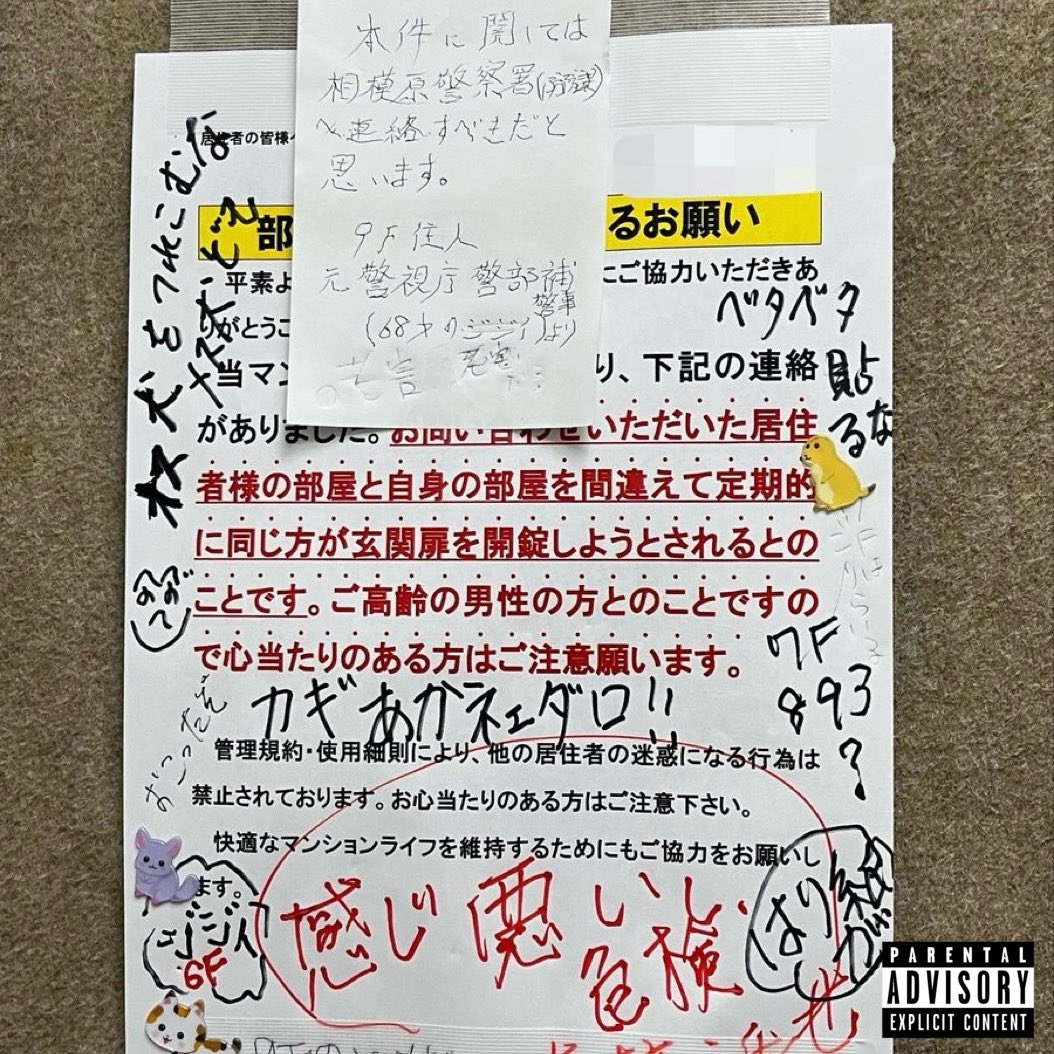 本件に関しては
相模原警察署
へ連絡すべきだと
思います。
9F住人
元警視庁警部補
警事
(68才のジジイ)より
居住者の皆様へ
部
るお願い
平素よ
にご協力いただきあ
りがとうご
当マン
り、下記の連絡
がありました。お問い合わせいただいた居住
者様の部屋と自身の部屋を間違えて定期的
に同じ方が玄関扉を開錠しようとされるとの
ことです。ご高齢の男性の方とのことですの
で心当たりのある方はご注意願います。
カギあかネェダロ!!
管理規約・使用細則により、他の居住者の迷惑になる行為は
禁止されております。お心当たりのある方はご注意下さい。
快適なマンションライフを維持するためにもご協力をお願いし
ます。
オス犬をつれこむな
メス犬どこ
ベタベタ
貼
るな
7F
893
?
おこったぞ
ジジイ
6F
感じ悪いし、
危険
はり紙が
PARENTAL
ADVISORY
EXPLICIT CONTENT